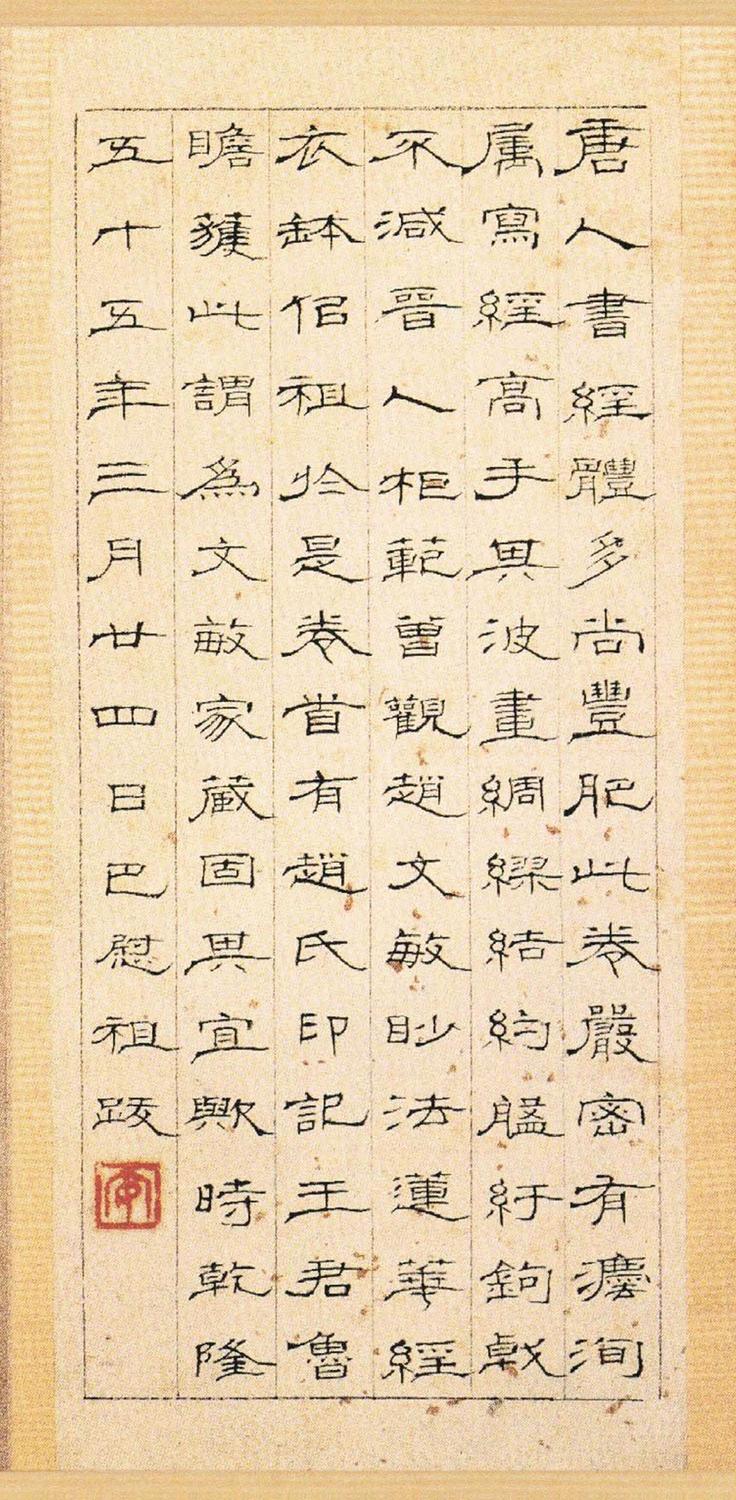 唐人書經體多尚豐肥此卷嚴密有灋洵
属寫經高手其波畫綢繆結約盤紆鉤戟
不減晉人柜範曾觀趙文敏眇法蓮華經
衣鉢侣祖於是卷首有趙氏印記王君魯
瞻獲此謂為文敏家藏固其宜歟時乾隆
五十五年三月廿四日巴慰祖跋